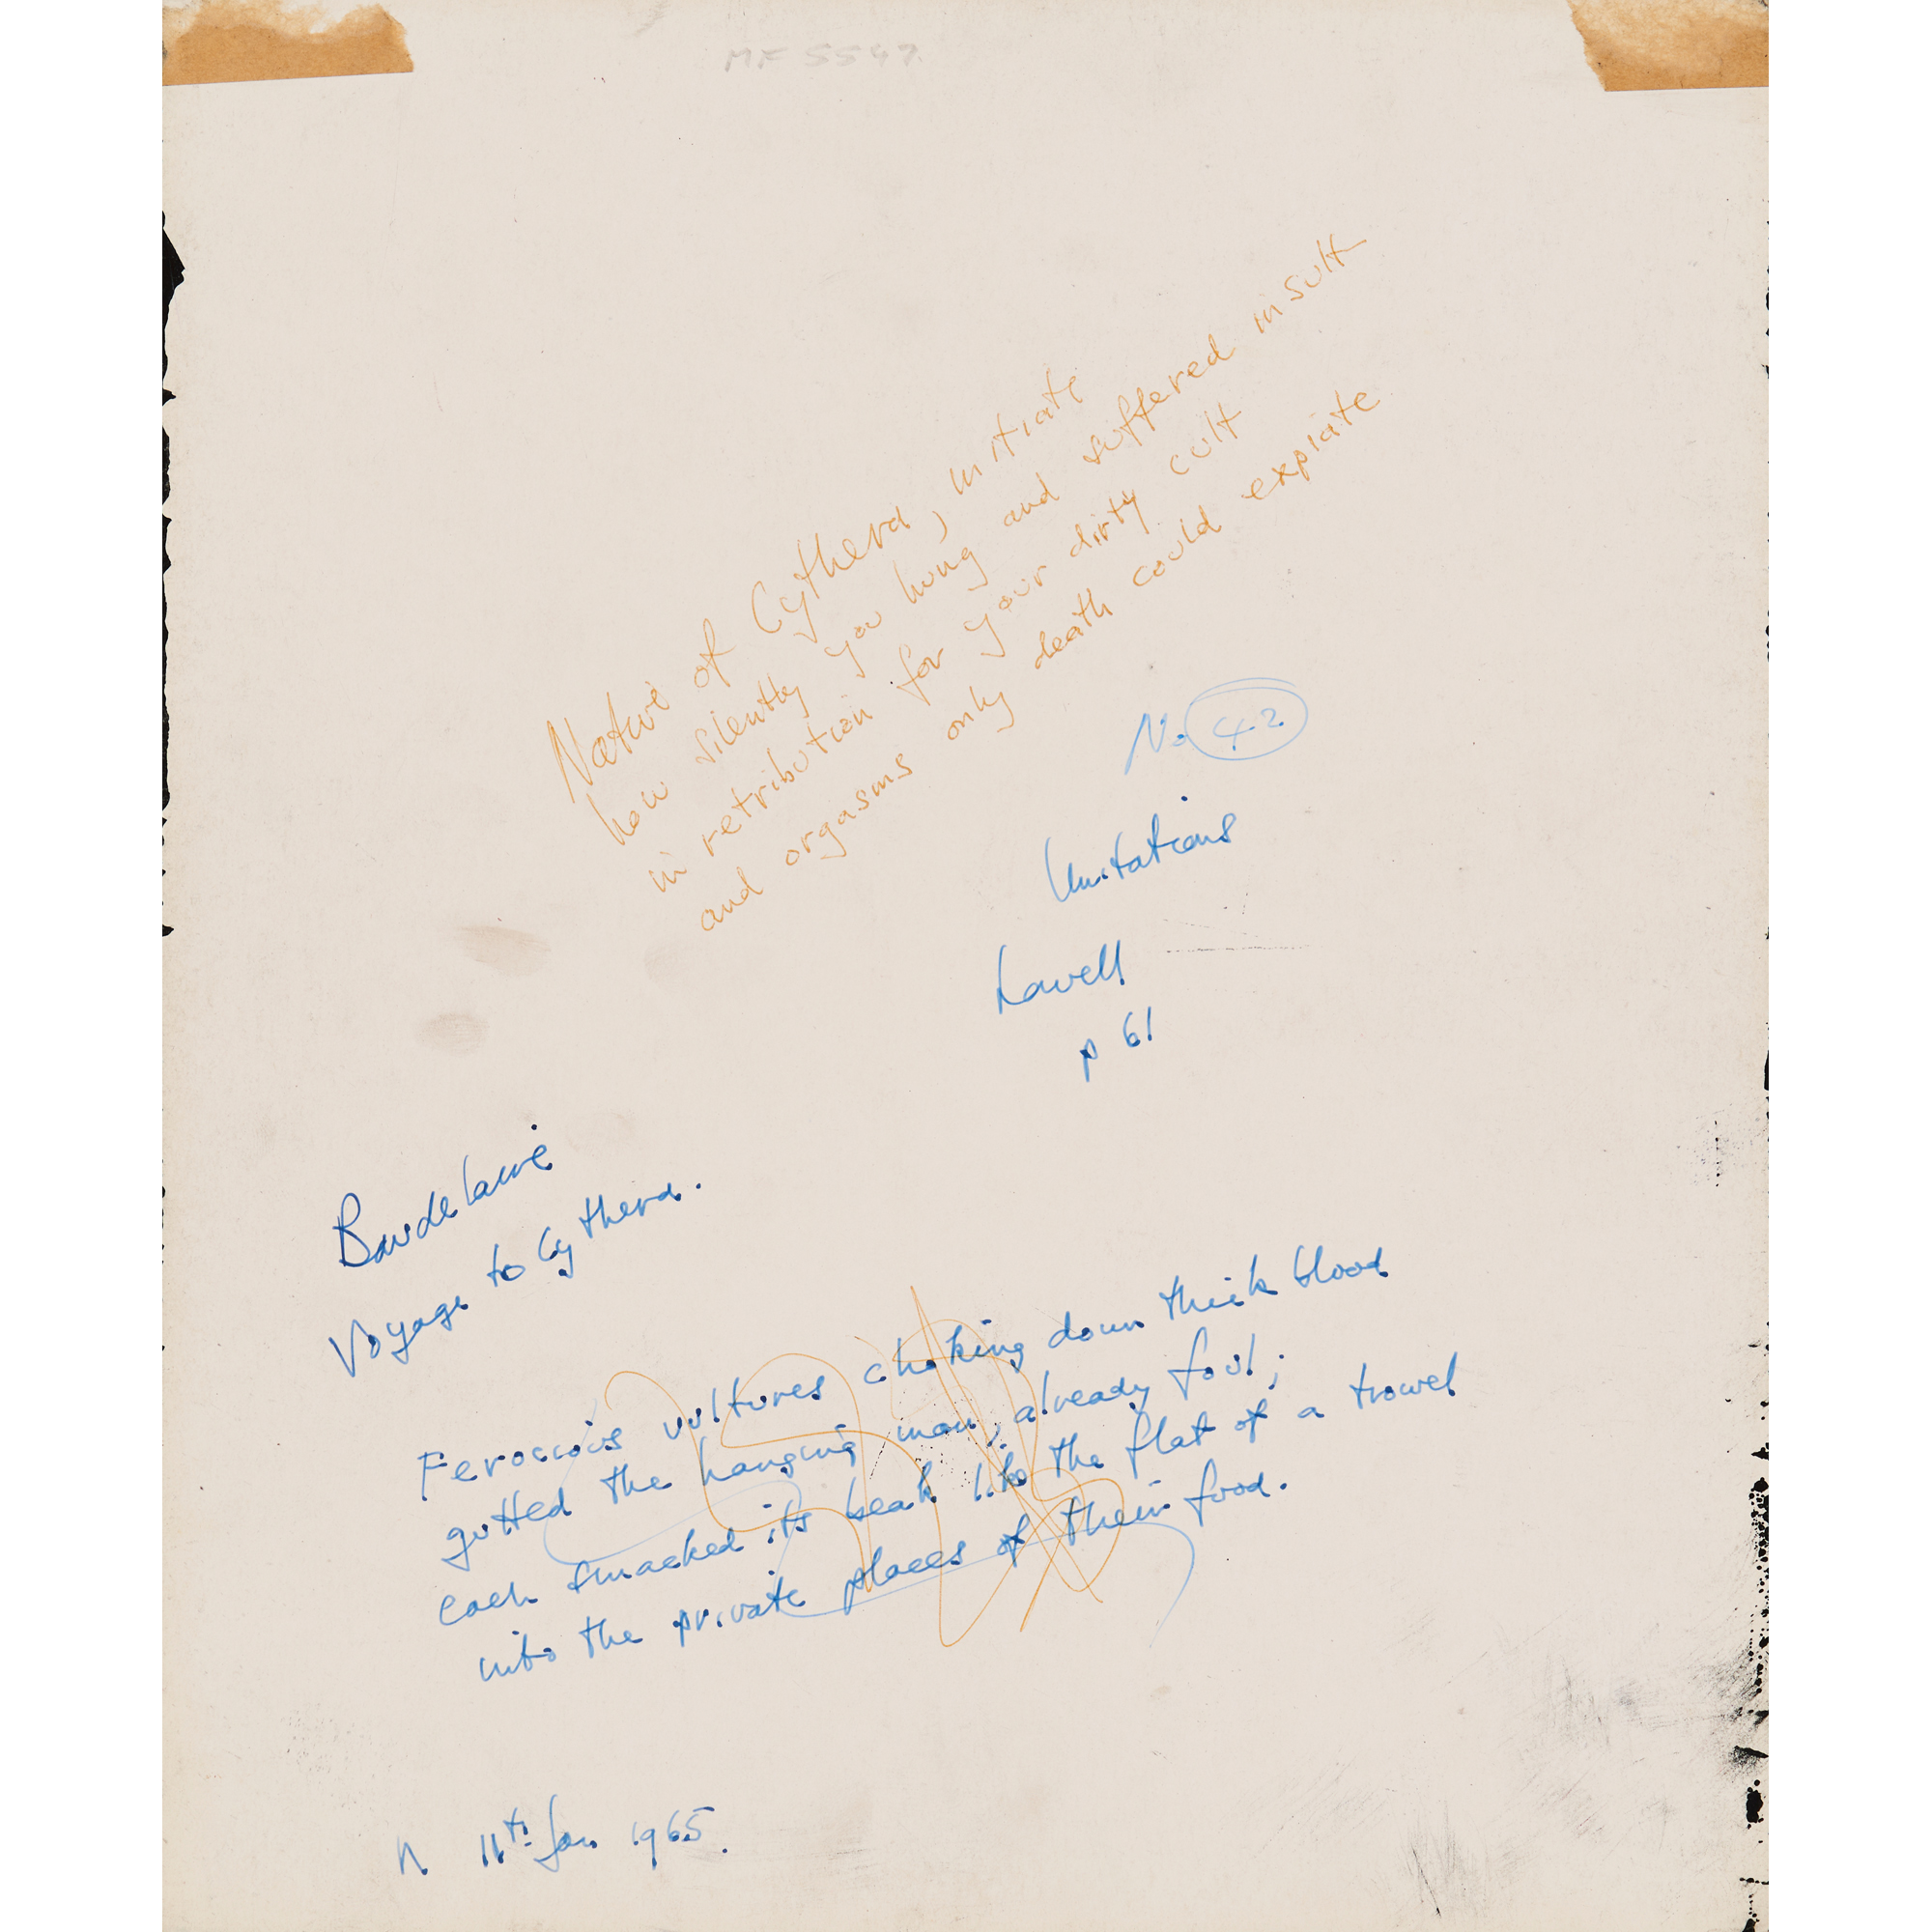 MF 5547.
Native of Cythera, initiate
how silently you hung and suffered insult
in retribution for your dirty cult
and orgasms only death could expiate
No 42
Imitations
Lowell
p 61
Baudelaire
Voyage to Cythera.
Ferocious vultures choking down thick blood
gutted the hanging man, already foul;
each smacked its beak like the flat of a trowel
into the private places of their food.
N. 11th Jan 1965.